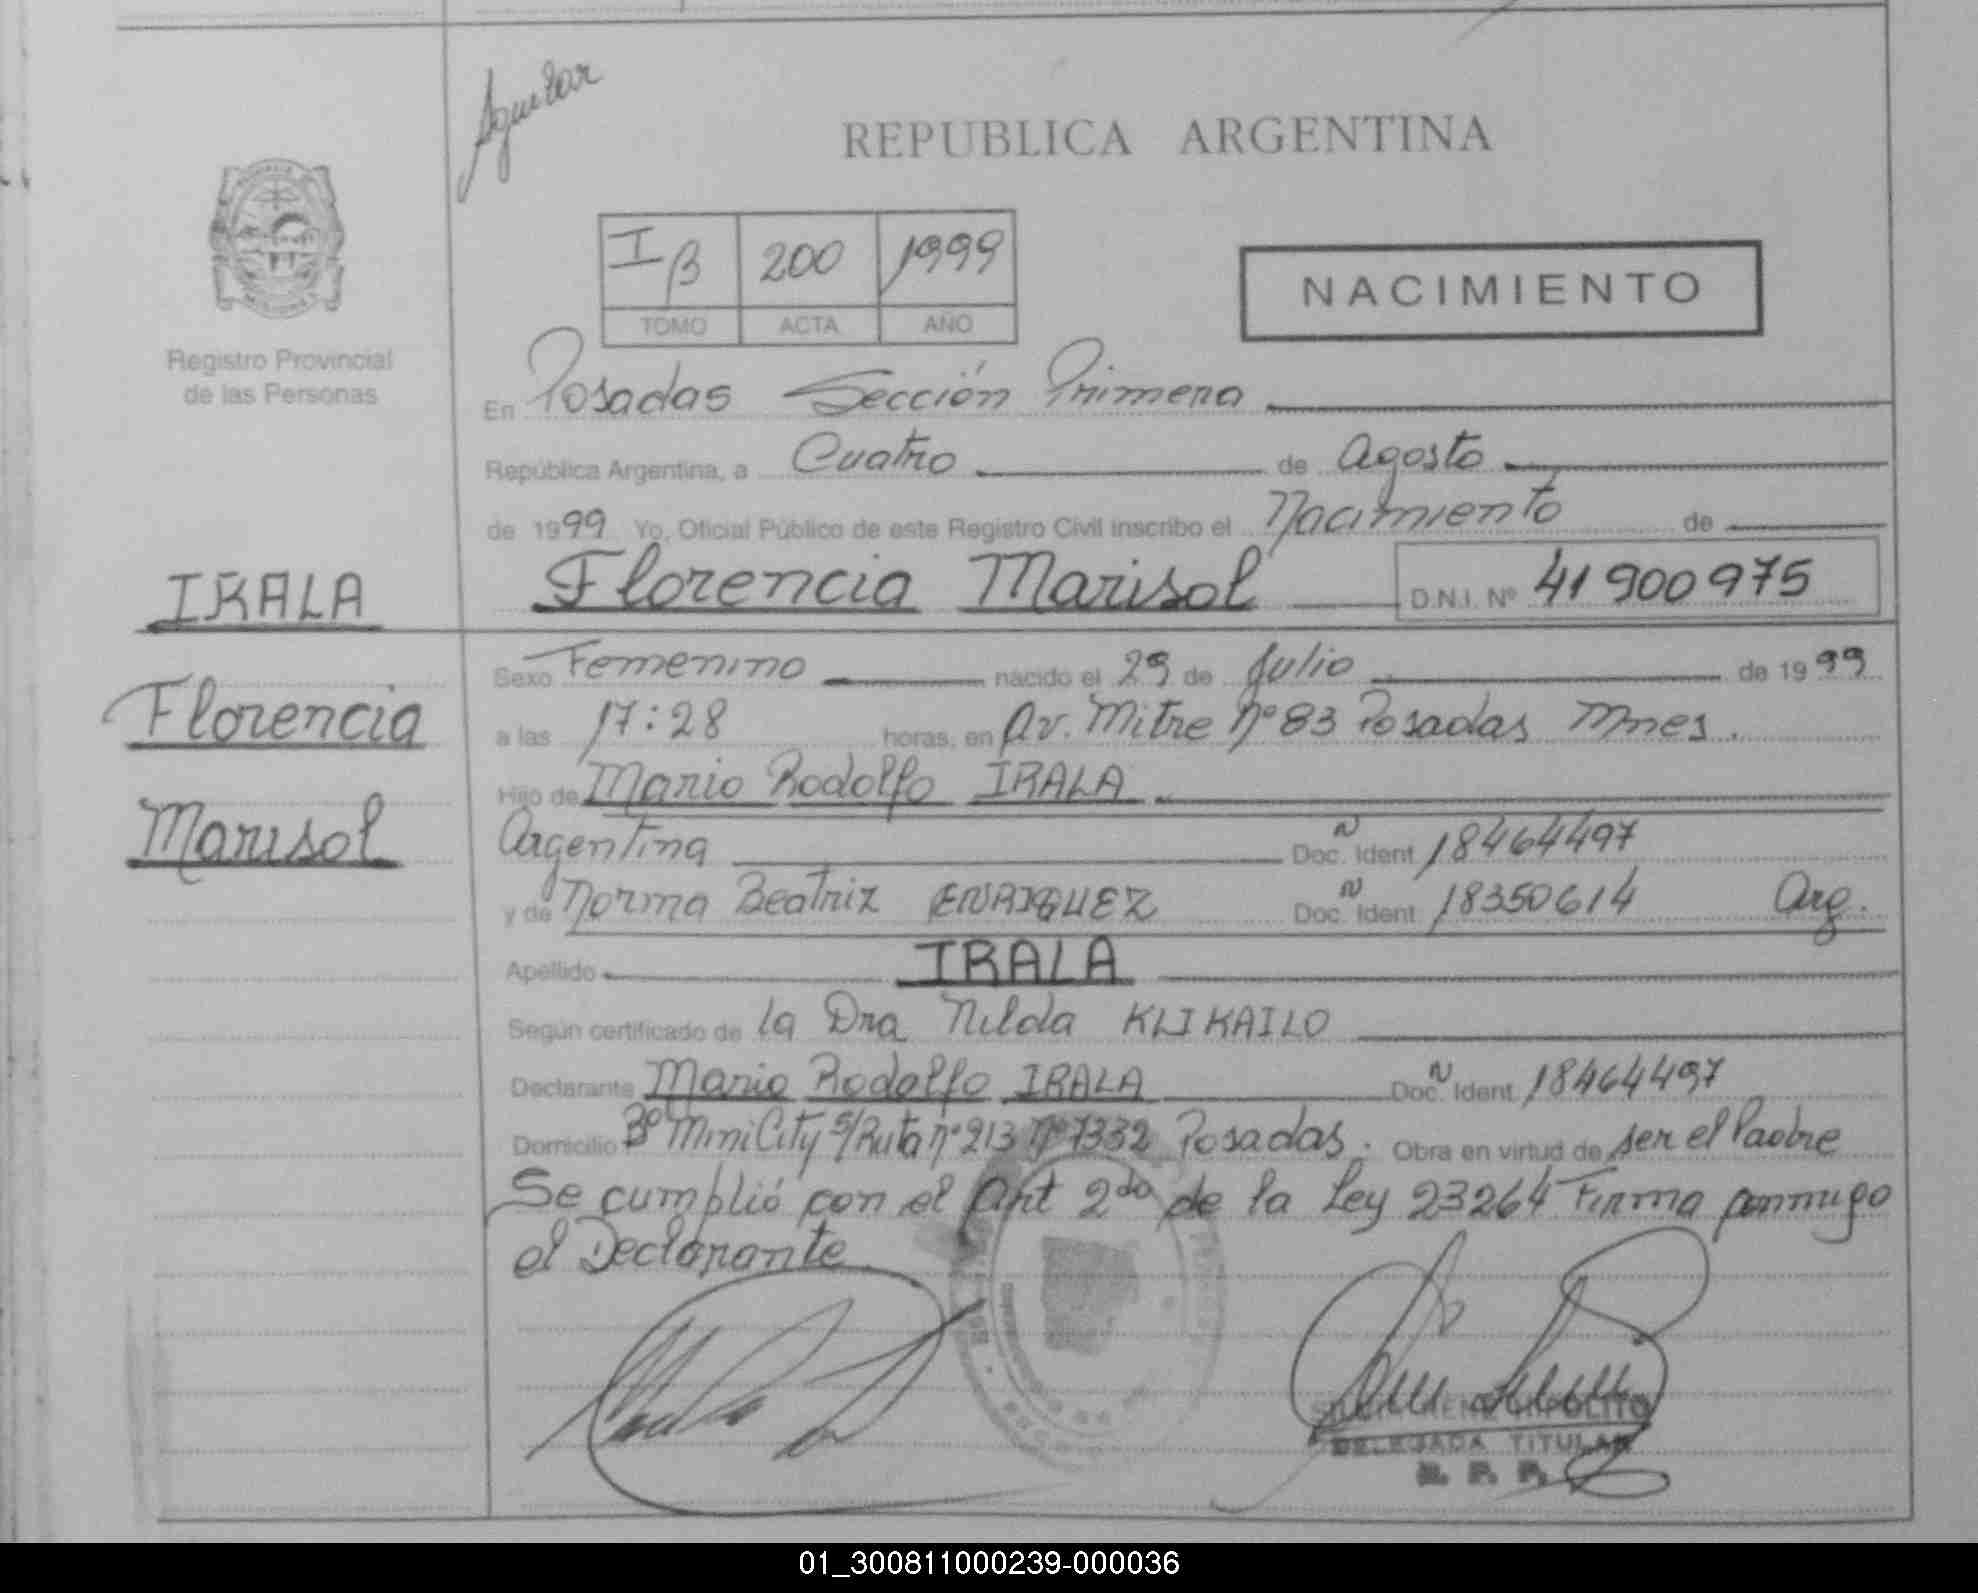 Aguilar
REPUBLICA ARGENTINA
I B 200 1999
TOMO ACTA AÑO
NACIMIENTO
Registro Provincial
de las Personas
En Posadas Sección Primera
República Argentina, a Cuatro de Agosto
de 1999 Yo, Oficial Público de este Registro Civil inscribo el Nacimiento de
IRALA
Florencia Marisol D.N.I. Nº 41900975
Florencia
Marisol
Sexo Femenino nacido el 29 de Julio de 1999
a las 17:28 horas, en Av. Mitre Nº 83 Posadas Mnes.
Hijo de Mario Rodolfo IRALA
Argentina Doc. Ident 18464497
y de Norma Beatriz ENRIQUEZ Doc. Ident 18350614 Arg.
Apellido IRALA
Según certificado de la Dra Nilda KLIKAILO
Declarante Mario Rodolfo IRALA Doc. Ident 18464497
Domicilio Bº MiniCity s/Ruta nº 213 Nº 7332 Posadas. Obra en virtud de ser el Padre
Se cumplió con el Art 2do de la Ley 23264 Firma conmigo
el Declarante
HIPOLITO
DELEGADA TITULAR
R. P. P.
01_300811000239-000036